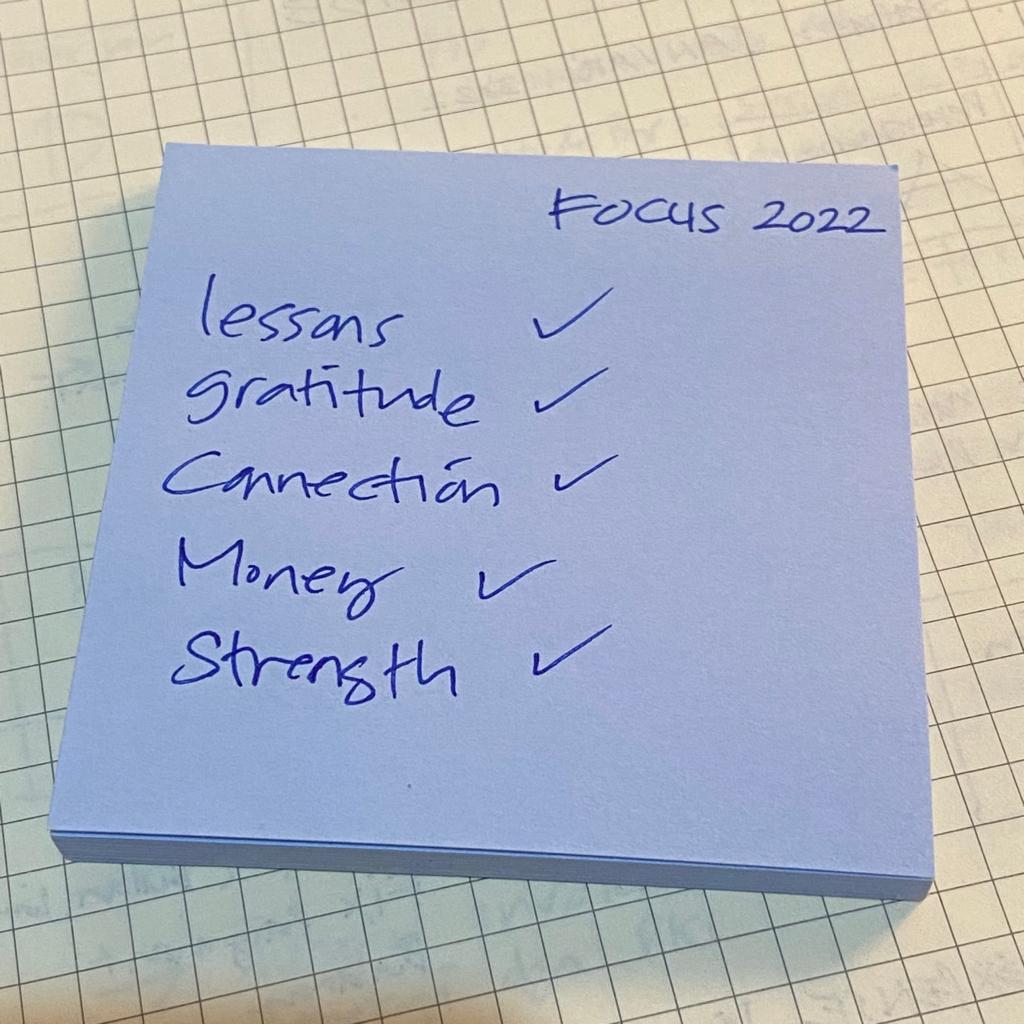 FOCUS 2022
lessons ✓
gratitude ✓
Connection ✓
Money ✓
Strength ✓